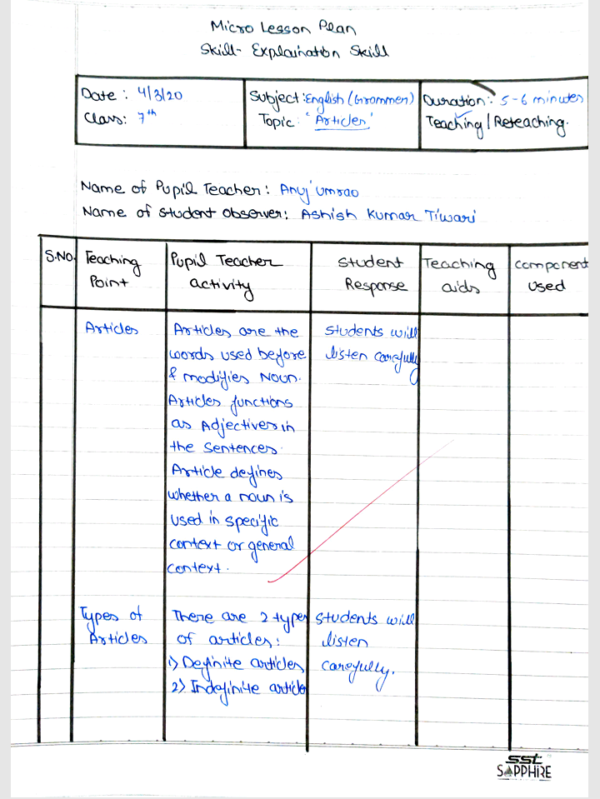 Micro Lesson Plan
Skill- Explaination Skill
Date : 4/3/20
Class: 7th
Subject: English (Grammer)
Topic: "Articles"
Duration: 5-6 minutes
Teaching / Reteaching.
Name of Pupil Teacher: Anuj umrao
Name of Student Observer: Ashish Kumar Tiwari
S.No. Teaching Point
Pupil Teacher activity
Student Response
Teaching aids
Component used
Articles
Articles are the
words used before
& modifies Noun.
Articles functions
as Adjectives in
the Sentences.
Article defines
whether a noun is
used in specific
context or general
context.
Students will
listen carefully
Types of
Articles
There are 2 types
of articles:
1) Definite articles
2) Indefinite article
Students will
listen
carefully.
sst
SAPPHIRE